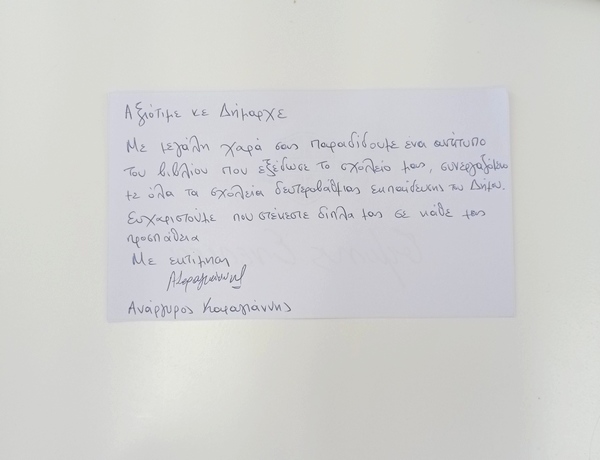 Αξιότιμε κε Δήμαρχε
Με μεγάλη χαρά σας παραδίδουμε ένα αντίτυπο
του βιβλίου που εξέδωσε το σχολείο μας, συνεργαζόμενο
με όλα τα σχολεία δευτεροβάθμιας εκπαίδευσης του Δήμου.
Ευχαριστούμε που στέκεστε δίπλα μας σε κάθε μας
προσπάθεια
Με εκτίμηση
Ανάργυρος Καραγιάννης